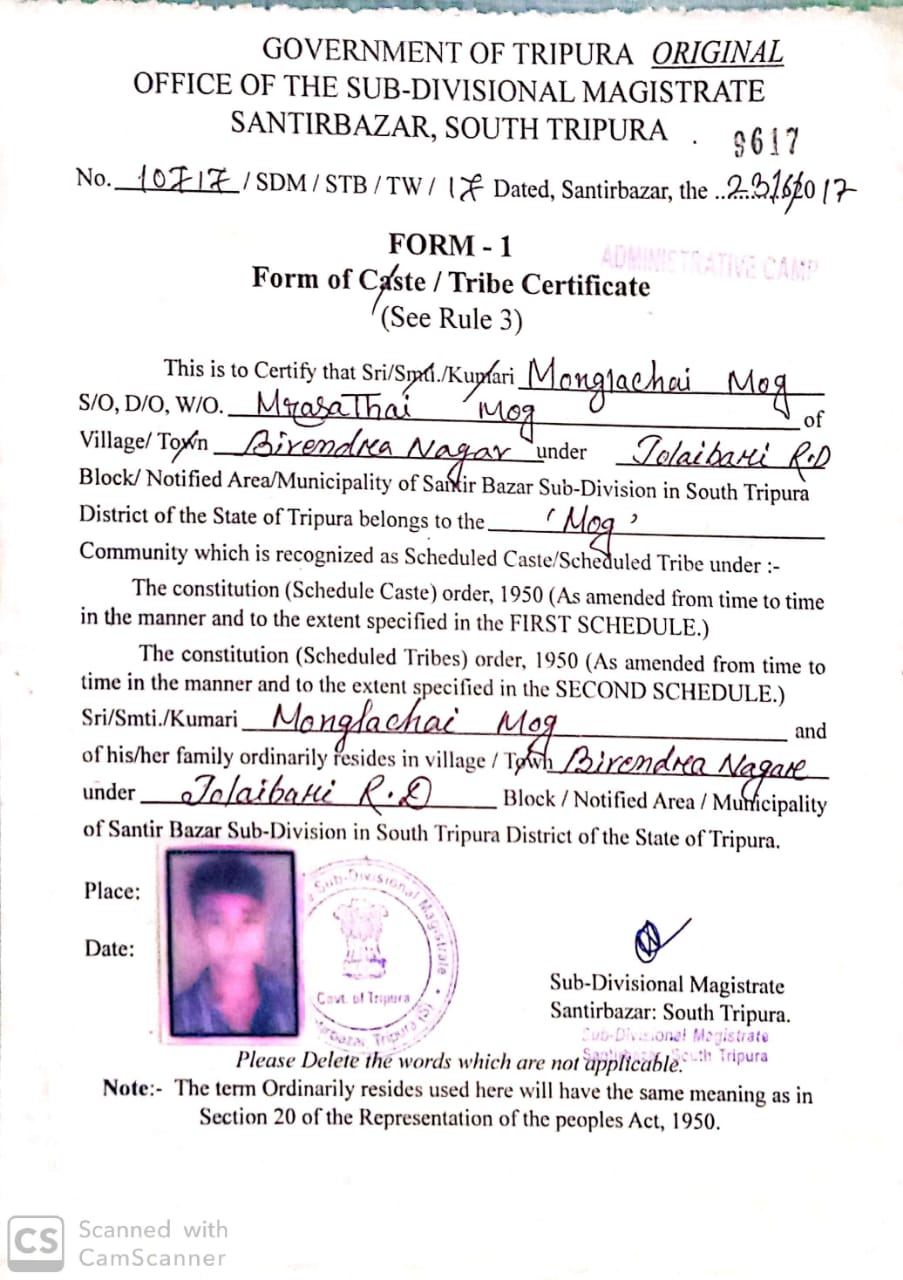 GOVERNMENT OF TRIPURA ORIGINAL
OFFICE OF THE SUB-DIVISIONAL MAGISTRATE
SANTIRBAZAR, SOUTH TRIPURA . 9617
No. 10717 / SDM / STB / TW / 17 Dated, Santirbazar, the ..23/6/2017
FORM - 1
ADMINISTRATIVE CAMP
Form of Caste / Tribe Certificate
(See Rule 3)
This is to Certify that Sri/Smti./Kumari Monglachai Mog
S/O, D/O, W/O. MrasaThai Mog of
Village/ Town Birendra Nagar under Jolaibari R.D
Block/ Notified Area/Municipality of Santir Bazar Sub-Division in South Tripura
District of the State of Tripura belongs to the 'Mog'
Community which is recognized as Scheduled Caste/Scheduled Tribe under :-
The constitution (Schedule Caste) order, 1950 (As amended from time to time
in the manner and to the extent specified in the FIRST SCHEDULE.)
The constitution (Scheduled Tribes) order, 1950 (As amended from time to
time in the manner and to the extent specified in the SECOND SCHEDULE.)
Sri/Smti./Kumari Monglachai Mog and
of his/her family ordinarily resides in village / Town Birendra Nagar
under Jolaibari R.D Block / Notified Area / Municipality
of Santir Bazar Sub-Division in South Tripura District of the State of Tripura.
Place:
Date:
Sub-Divisional Magistrate
Govt. of Tripura
Tripura (S)
Sub-Divisional Magistrate
Santirbazar: South Tripura.
Sub-Divisional Magistrate
Santirbazar, South Tripura
Please Delete the words which are not applicable.
Note:- The term Ordinarily resides used here will have the same meaning as in
Section 20 of the Representation of the peoples Act, 1950.
CS Scanned with
CamScanner